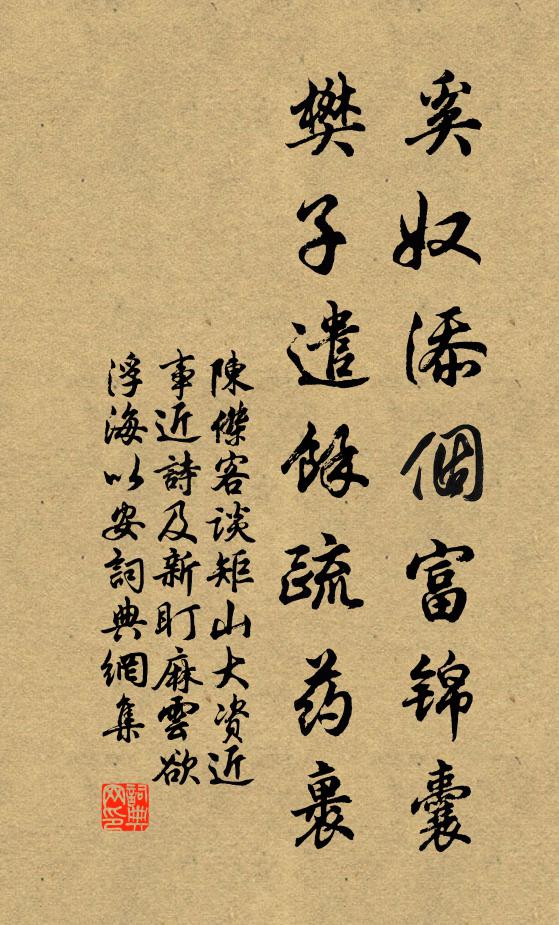 奚奴添個富錦囊
樊子遣餘疏药裹
陳傑客談矩山大资近
事近詩及新盯麻雲欲
浮海以安詞典網集
詞典
网印